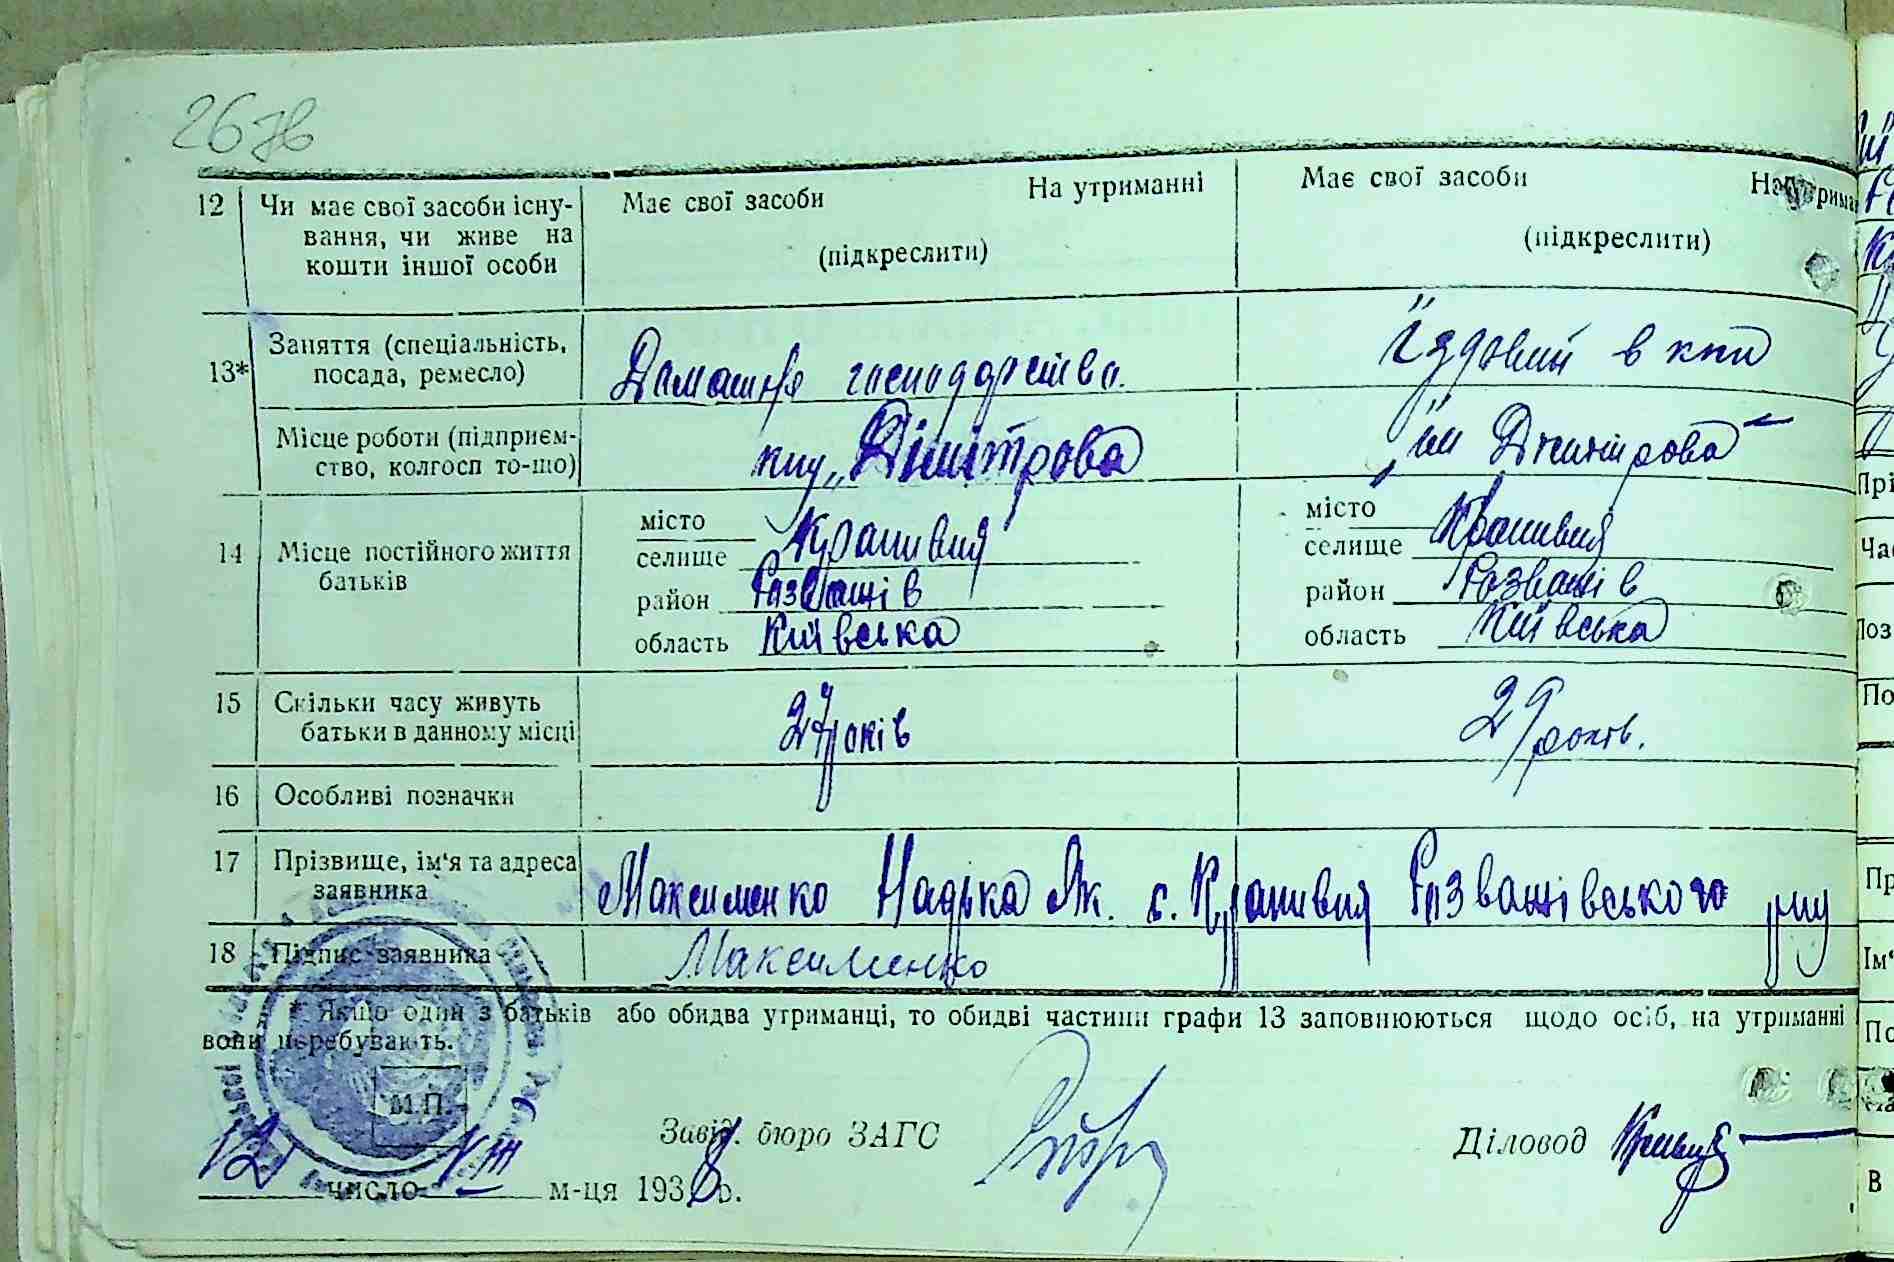 267в
12 Чи має свої засоби існу- Має свої засоби На утриманні Має свої засоби На утриман
вання, чи живе на (підкреслити) (підкреслити)
кошти іншої особи
13* Заняття (спеціальність, посада, ремесло) Домашнє господарство. Їздовий в кпи
Місце роботи (підприєм-
ство, колгосп то-що) „Дімітрова „ім Дімітрова"
14 Місце постійного життя батьків
місто місто
селище Крапивня селище Крапивня
район Розважів район Розважів
область Київська область Київська
15 Скільки часу живуть
батьки в данному місці 27 років 29 років.
16 Особливі позначки
17 Прізвище, ім'я та адреса
заявника Максименко Надька Як. с. Крапивня Розважівського р-ну
18 Підпис заявника Максименко
* Якщо один з батьків або обидва утриманці, то обидві частини графи 13 заповнюються щодо осіб, на утриманні
вони перебувають.
М.П.
Завід. бюро ЗАГС Діловод
12 число VIII м-ця 1938 р.